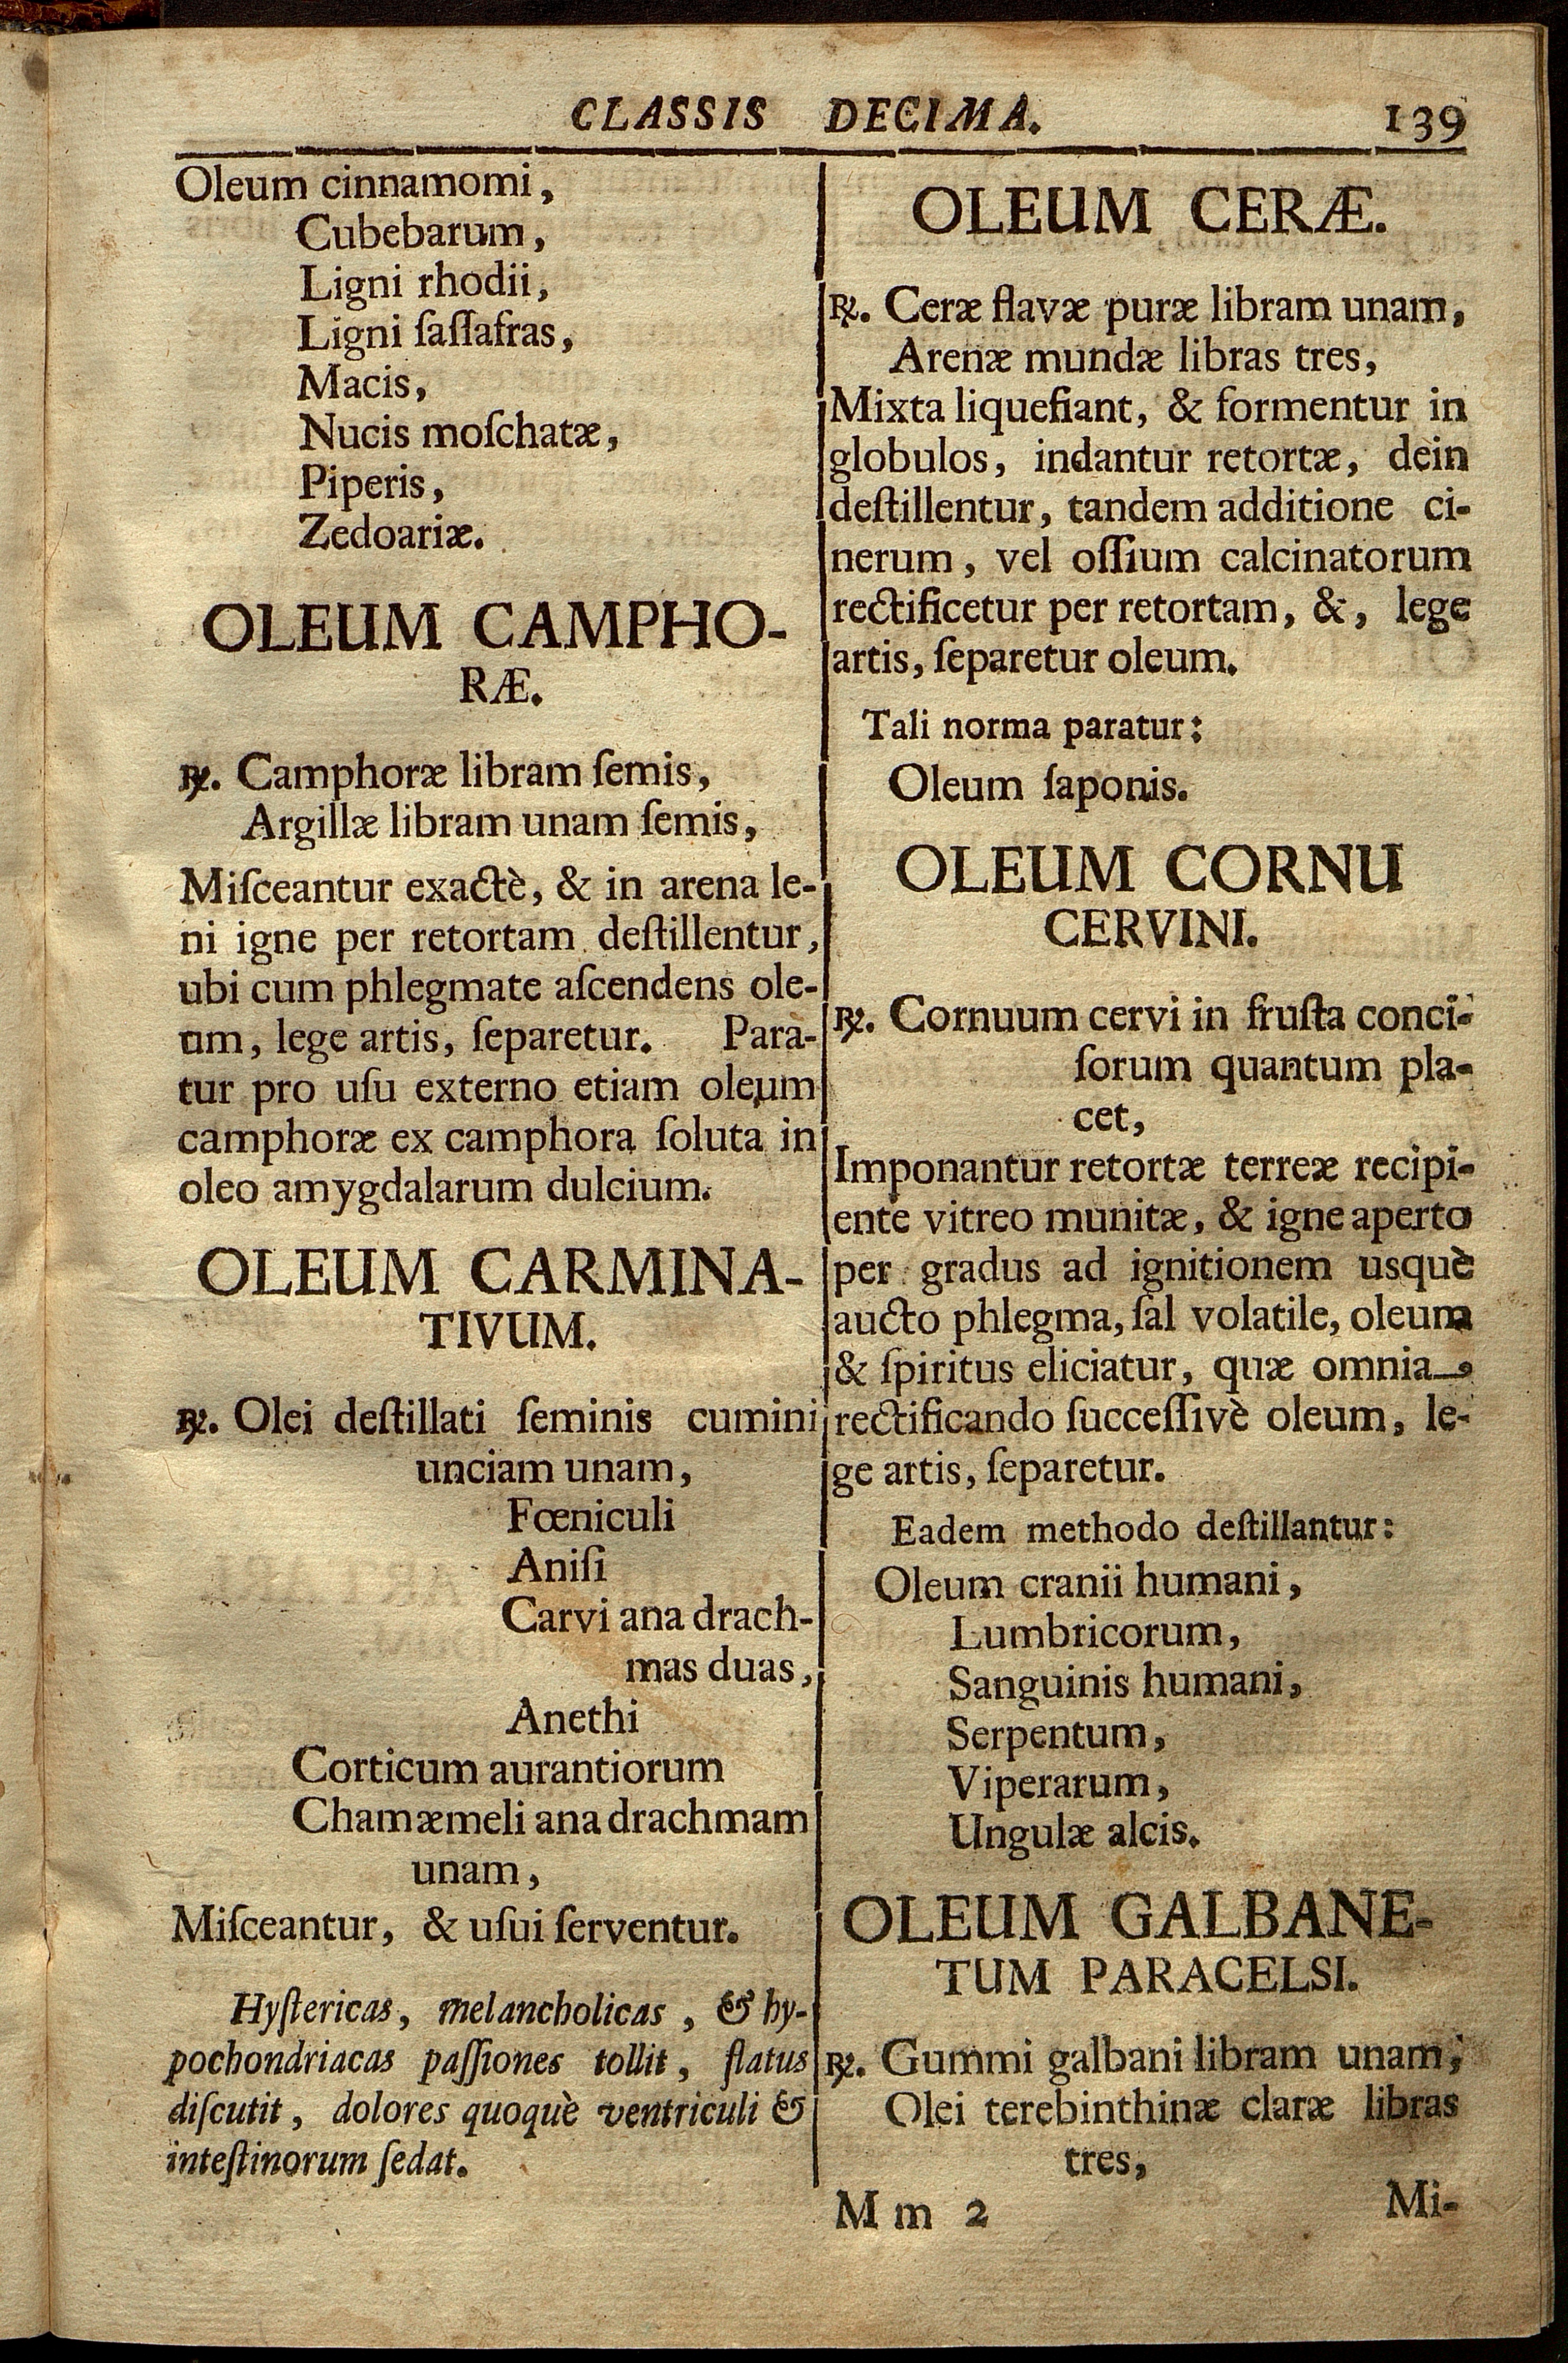 CLASSIS DECIMA. 139
Oleum cinnamomi,
Cubebarum,
Ligni rhodii,
Ligni ſaſſafras,
Macis,
Nucis moſchatæ,
Piperis,
Zedoariæ.
OLEUM CAMPHO-
RÆ.
℞. Camphoræ libram ſemis,
Argillæ libram unam ſemis,
Miſceantur exactè, & in arena le-
ni igne per retortam deſtillentur,
ubi cum phlegmate aſcendens ole-
um, lege artis, ſeparetur. Para-
tur pro uſu externo etiam oleum
camphoræ ex camphora ſoluta in
oleo amygdalarum dulcium.
OLEUM CARMINA-
TIVUM.
℞. Olei deſtillati ſeminis cumini
unciam unam,
Fœniculi
Aniſi
Carvi ana drach-
mas duas,
Anethi
Corticum aurantiorum
Chamæmeli ana drachmam
unam,
Miſceantur, & uſui ſerventur.
Hyſtericas, melancholicas, & hy-
pochondriacas paſſiones tollit, flatus
diſcutit, dolores quoquè ventriculi &
inteſtinorum ſedat.
OLEUM CERÆ.
℞. Ceræ flavæ puræ libram unam,
Arenæ mundæ libras tres,
Mixta liquefiant, & formentur in
globulos, indantur retortæ, dein
deſtillentur, tandem additione ci-
nerum, vel oſſium calcinatorum
rectificetur per retortam, &, lege
artis, ſeparetur oleum.
Tali norma paratur:
Oleum ſaponis.
OLEUM CORNU
CERVINI.
℞. Cornuum cervi in fruſta conci-
ſorum quantum pla-
cet,
Imponantur retortæ terreæ recipi-
ente vitreo munitæ, & igne aperto
per gradus ad ignitionem usquè
aucto phlegma, ſal volatile, oleum
& ſpiritus eliciatur, quæ omnia
rectificando ſucceſſivè oleum, le-
ge artis, ſeparetur.
Eadem methodo deſtillantur:
Oleum cranii humani,
Lumbricorum,
Sanguinis humani,
Serpentum,
Viperarum,
Ungulæ alcis.
OLEUM GALBANE-
TUM PARACELSI.
℞. Gummi galbani libram unam,
Olei terebinthinæ claræ libras
tres,
M m 2 Mi-